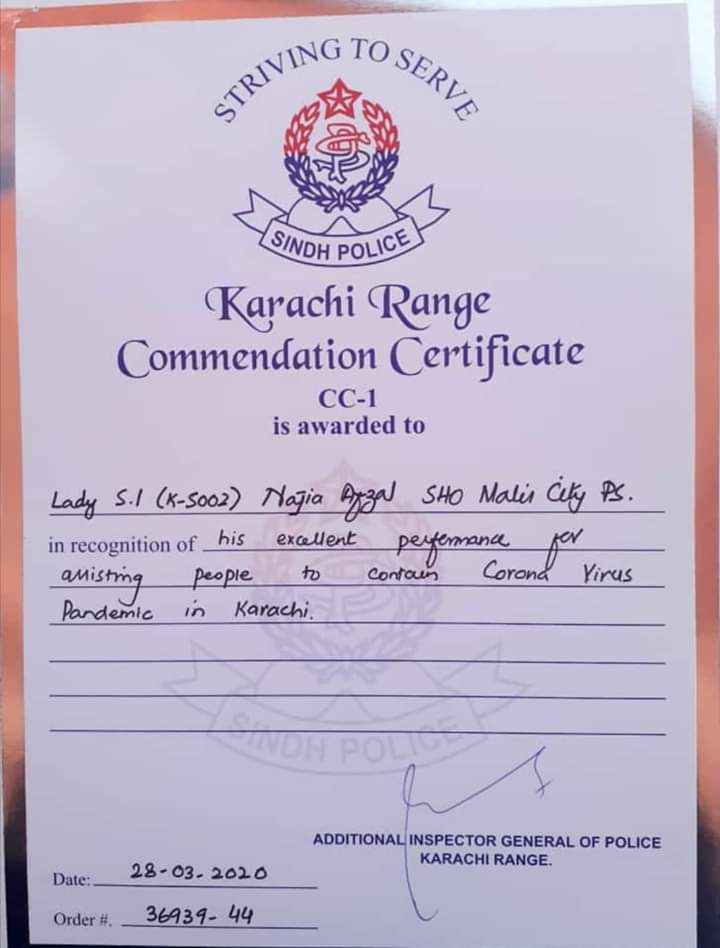 STRIVING TO SERVE
SINDH POLICE
Karachi Range
Commendation Certificate
CC-1
is awarded to
Lady S.I (K-5002) Najia Afzal SHO Malir City PS.
in recognition of his excellent performance for
assisting people to contain Corona Virus
Pandemic in Karachi.
SINDH POLICE
ADDITIONAL INSPECTOR GENERAL OF POLICE
KARACHI RANGE.
Date: 28-03-2020
Order #. 36939-44